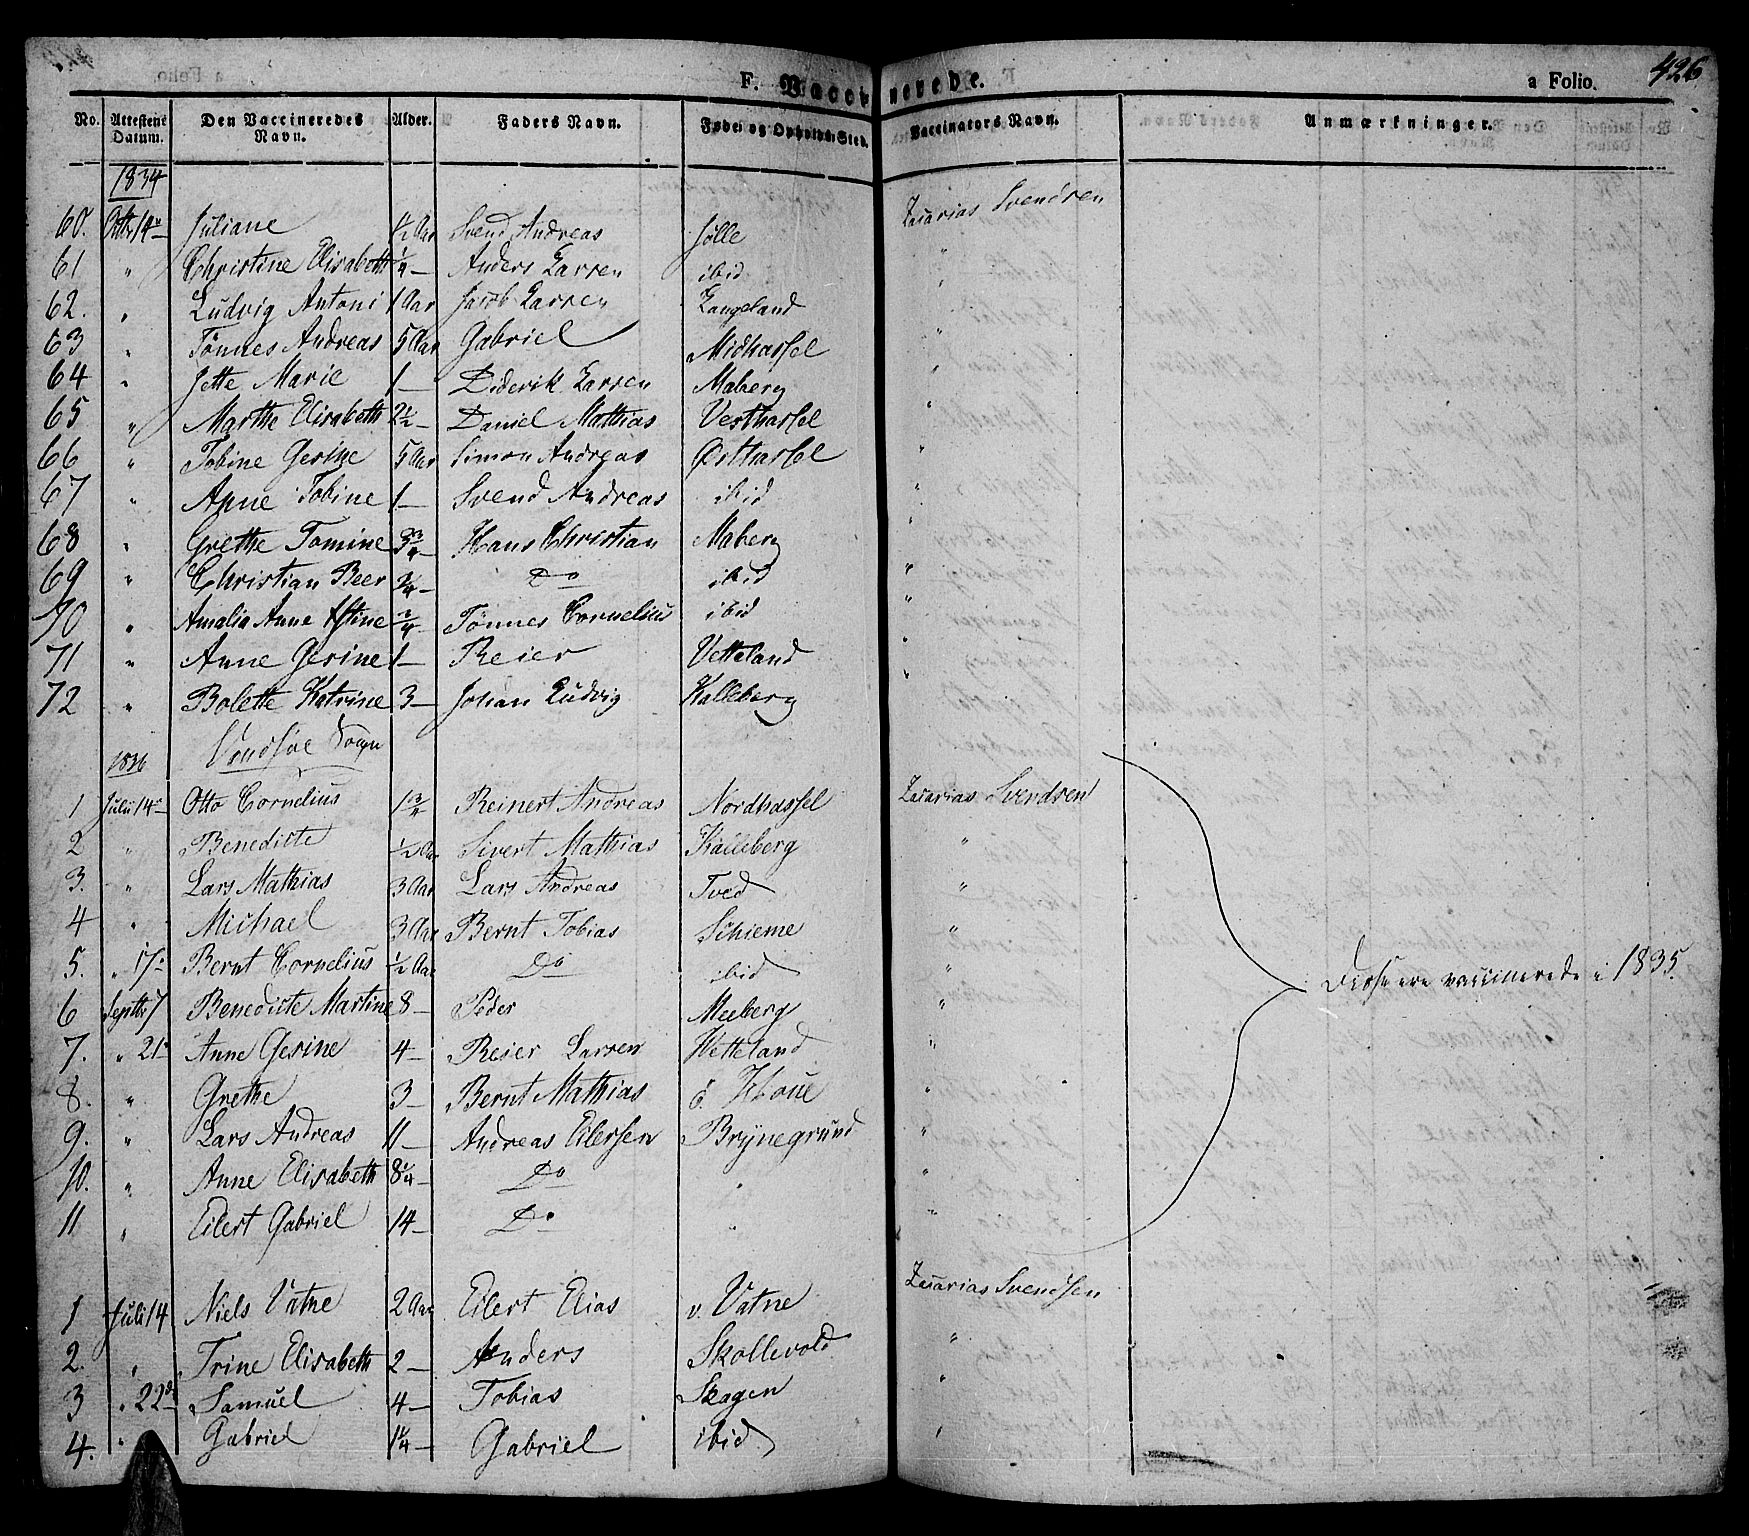 F. Vaccinerede. a Folio. 426
No. Attestens Datum. Den Vaccineredes Navn. Alder. Faders Navn. Føde og Opholds Sted. Vaccinators Navn. Anmærkninger.
1834
60. Octbr 14 Juliane 1/2 Aar Svend Andreas Jølle Zacarias Svendsen
61 " Christine Elisabeth 1/4 — Anders Larsen ibid "
62. " Ludvig Antoni 1 Aar Jacob Larsen Langeland "
63 " Tönnes Andreas 5 Aar Gabriel Midhassel "
64 " Jette Marie 1 — Diderik Larsen Maberg "
65 " Marthe Elisabeth 2 1/2 — Daniel Mathias Vesthassel "
66 " Tobine Gesine 5 Aar Simon Andreas Østhassel "
67 " Anne Tobine 1 — Svend Andreas ibid "
68 " Grethe Tomine 3 3/4 — Hans Christian Maberg "
69 " Christian Beer 3/4 — Do ibid "
70 " Amalia Anne Astine 3/4 — Tönnes Cornelius ibid "
71 " Anne Gesine 1 — Reier Vetteland "
72 " Bolette Katrine 3 — Johan Ludvig Kalleberg "
1836 Vandsøe Sogn
1 Juli 14 Otto Cornelius 1 3/4 Reinert Andreas Nordhassel Zacarias Svendsen
2 " Benedicte 1/2 Aar Sivert Mathias Kalleberg "
3. " Lars Mathias 3 Aar Lars Andreas Tved "
4 " Michael 3 Aar Bernt Tobias Schieme "
5. " 17 Bernt Cornelius 1/2 Aar Do ibid " Disse ere vaccinerede i 1835.
6 Septbr 7 Benedicte Martine 8 — Peder Meeberg "
7. " 21 Anne Gesine 4 — Reier Larsen Vetteland "
8. " Grethe 3 — Bernt Mathias ö. "
9. " Lars Andreas 11 — Andreas Eilersen Brynegrund "
10. " Anne Elisabeth 8 1/4 — Do " "
11 " Eilert Gabriel 14 — Do " "
1 Juli 14 Niels Vatne 2 Aar Eilert Elias v. Vatne Zacarias Svendsen
2. " Trine Elisabeth 2 — Anders Skollevold "
3 " 22 Samuel 4 — Tobias Skagen "
4. " Gabriel 1 1/4 — Gabriel ibid "